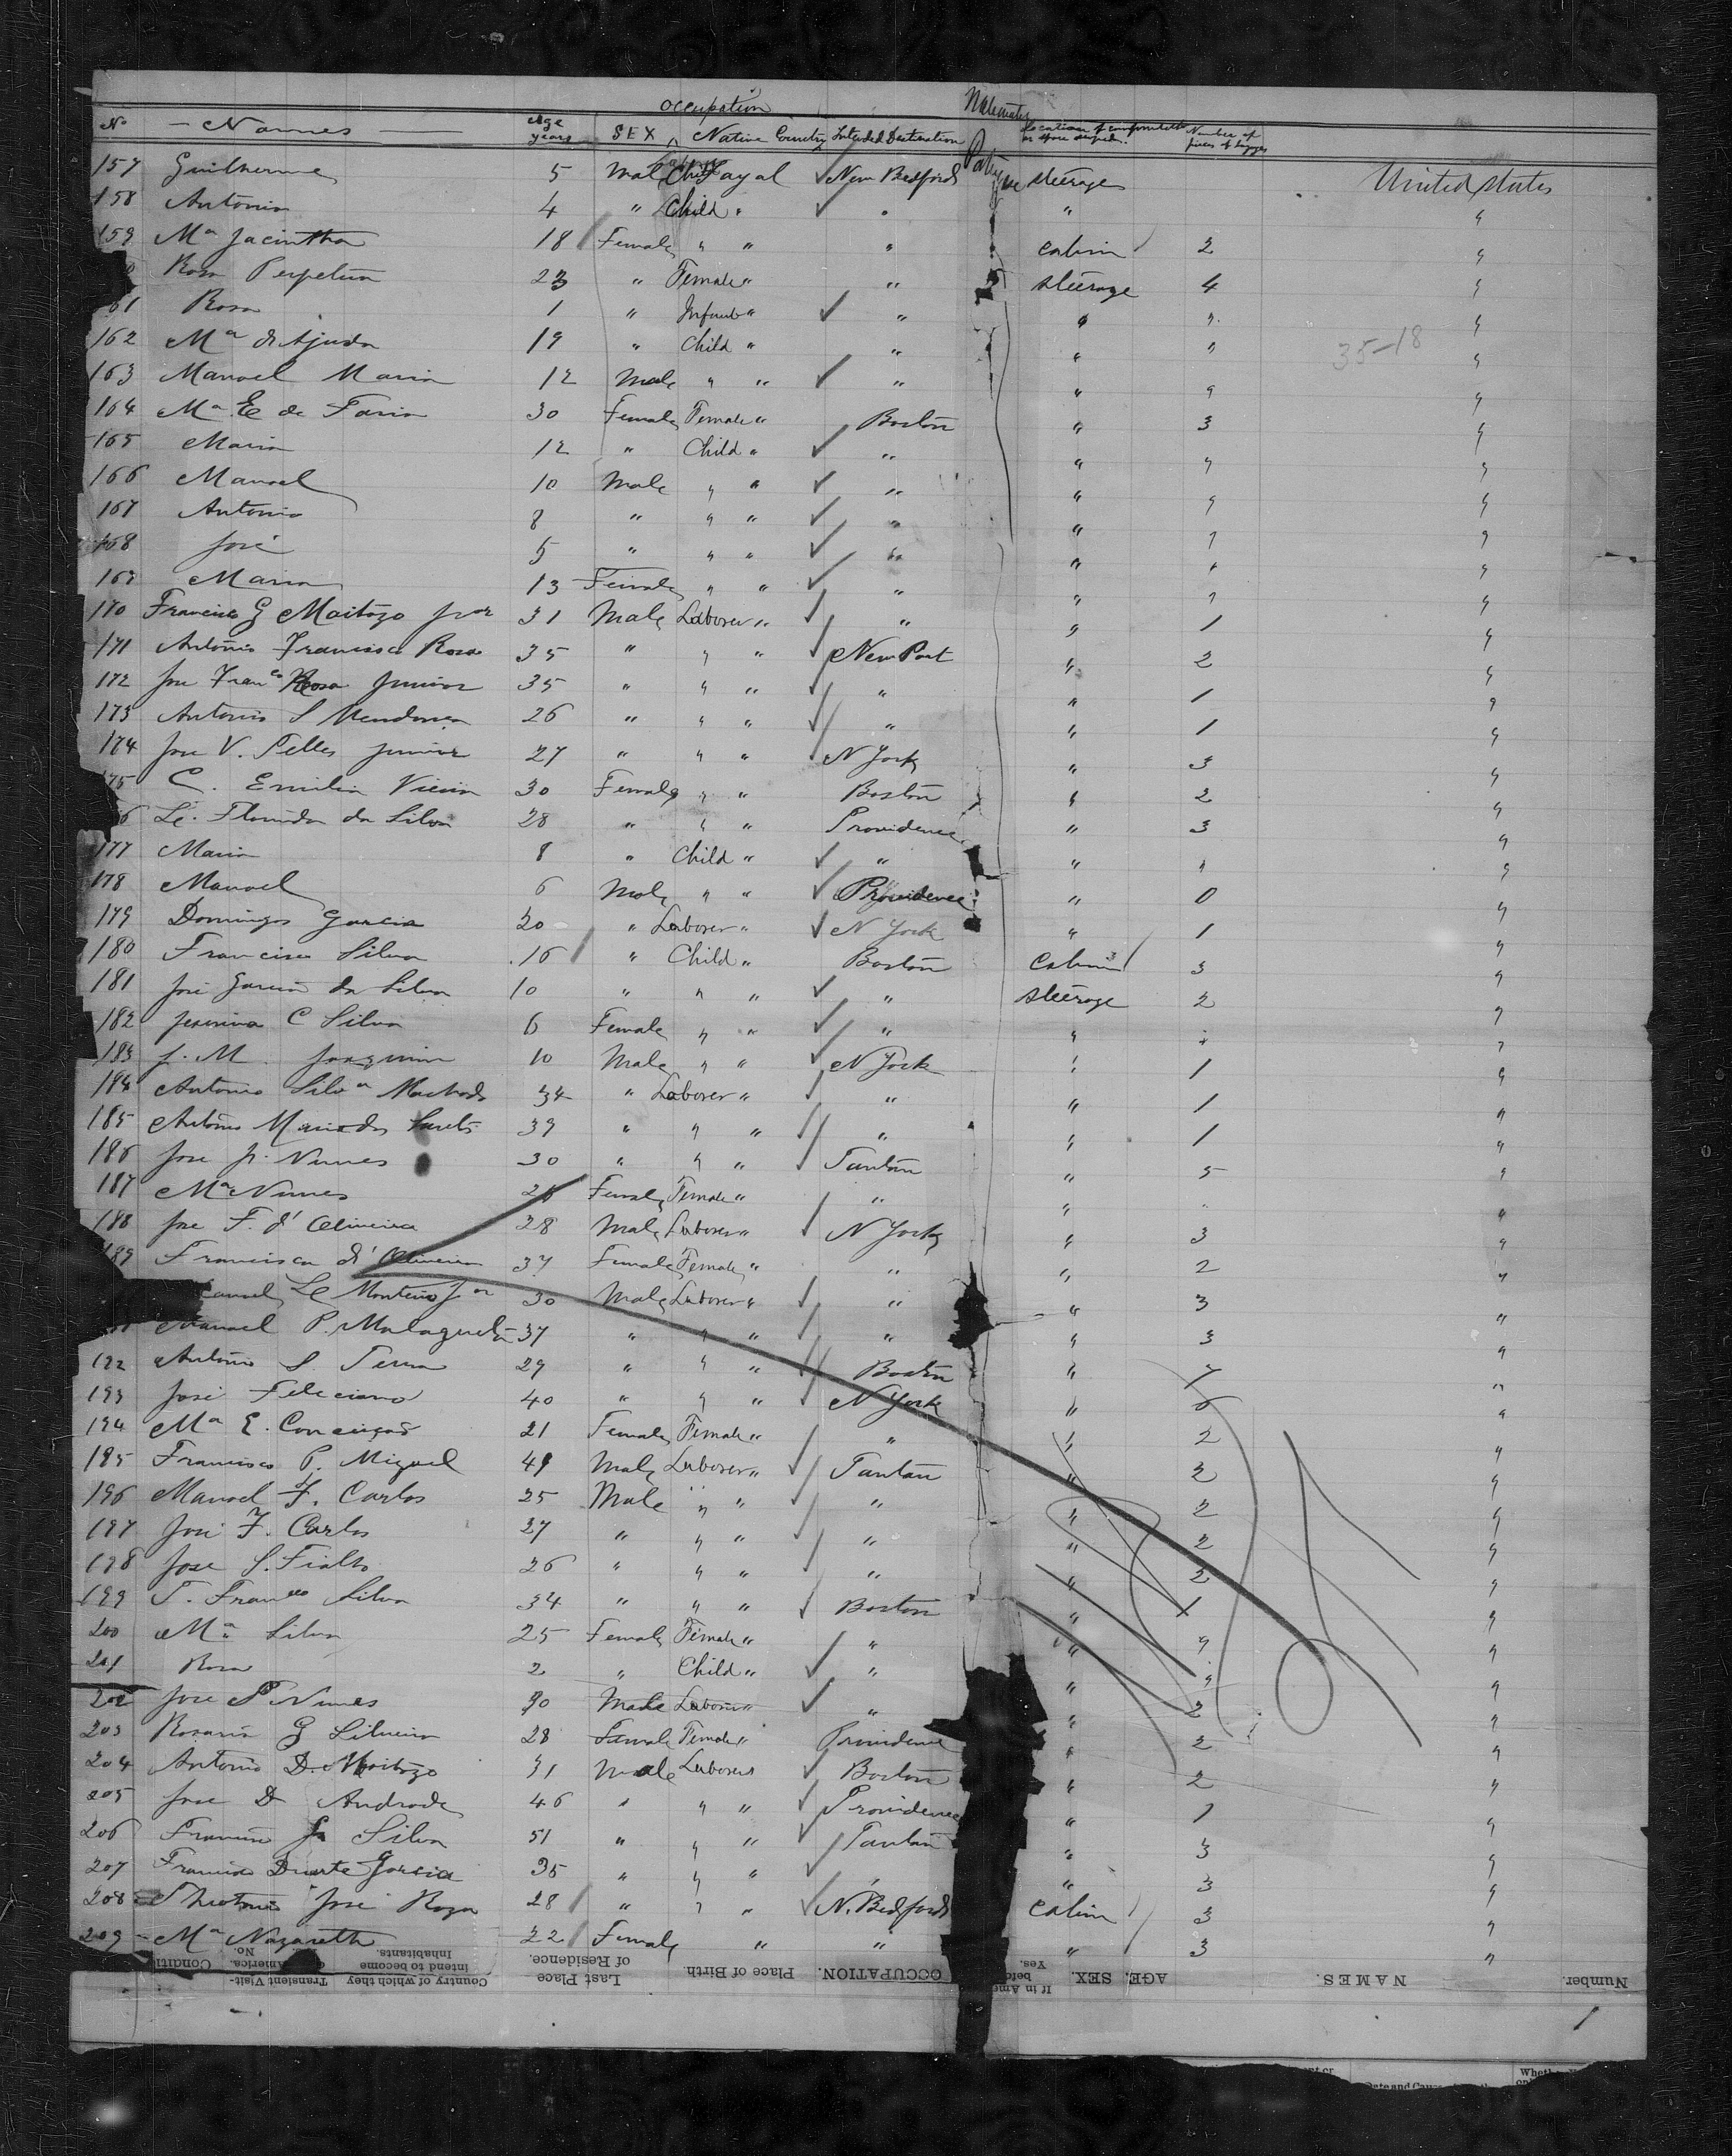 occupation
No Names Age years SEX Native Country Intended Destination Number of pieces of luggage
157 Guilherme 5 Male Child Fayal New Bedford steerage United States
158 Antonio 4 " Child " " " "
159 Ma Jacintha 18 Female " " " cabin 2 "
Rosa Perpetua 23 " Female " " steerage 4 "
61 Rosa 1 " Infant " " " " "
162 Ma d'Ajuda 19 " Child " " " " "
35-18
163 Manoel Maria 12 Male " " " " " "
164 Ma E de Faria 30 Female Female " Boston " 3 "
165 Maria 12 " Child " " " " "
166 Manoel 10 Male " " " " " "
167 Antonio 8 " " " " " " "
168 José 5 " " " " " " "
169 Maria 13 Female " " " " " "
170 Francisco G Maitozo Jor 31 Male Laborer " " " 1 "
171 Antonio Francisco Rosa 35 " " " New Port " 2 "
172 Jose Franco Rosa Junior 35 " " " " " 1 "
173 Antonio S Mendonça 26 " " " " " 1 "
174 Jose V. Telles Junior 27 " " " N York " 3 "
175 C. Emilia Vieira 30 Female " " Boston " 2 "
6 Florinda da Silva 28 " " " Providence " 3 "
177 Maria 8 " Child " " " " "
178 Manoel 6 Male " " Providence " 0 "
179 Domingos Garcia 20 " Laborer " N York " 1 "
180 Francisco Silva 16 " Child " Boston Cabin 3 "
181 José Garcia da Silva 10 " " " " steerage 2 "
182 C Silva 6 Female " " " " " "
183 J. M. Joaquim 10 Male " " N York " 1 "
184 Antonio Silva Machado 34 " Laborer " " " 1 "
185 Antonio Maria dos Santos 39 " " " " " 1 "
186 Jose P. Nunes 30 " " " Tantan " 5 "
187 Ma Nunes 26 Female Female " " " " "
188 Jose F. d'Oliveira 28 Male Laborer " N York " 3 "
189 Francisca d'Oliveira 37 Female Female " " " 2 "
Monteiro Jor 30 Male Laborer " " " 3 "
Manoel P. Malagueta 37 " " " " " 3 "
192 Antonio S. Terra 29 " " " Boston " 1 "
193 José Feleciano 40 " " " N York " "
194 Ma E. Conceição 21 Female Female " " " 2 "
195 Francisco P. Miguel 49 Male Laborer " Tantan " 2 "
196 Manoel F. Carlos 25 Male " " " " 2 "
197 José F. Carlos 27 " " " " " 2 "
198 Jose S. Fialho 26 " " " " " 2 "
199 Silva 34 " " " Boston " 1 "
200 Ma Silva 25 Female Female " " " " "
201 Rosa 2 " Child " " " " "
202 Jose P Nunes 30 Male Laborer " " " 2 "
203 Rosaria G Silveira 28 Female Female " Providence " 2 "
204 Antonio D. Maitozo 31 Male Laborer Boston " 2 "
205 Jose D Andrade 46 " " " Providence " 1 "
206 Francisco Silva 51 " " " Tantan " 3 "
207 Francisco Duarte Garcia 35 " " " " " 3 "
208 José Roza 28 " " " N. Bedford Cabin 3 "
209 Ma Nazareth 22 Female " " " 3 "
Number. NAMES. AGE. SEX. If in Ame befo Yes. OCCUPATION. Place of Birth. Last Place of Residence. Country of which they intend to become Inhabitants. Transient Visit- America. No. Conditi
1